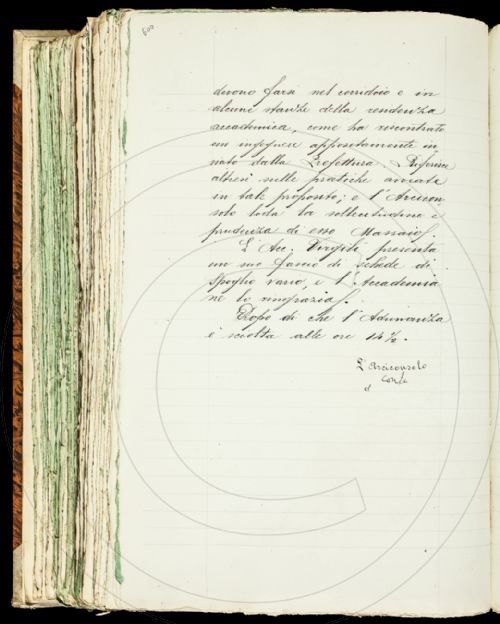 600
devono farsi nel corridoio e in
alcune stanze della residenza
accademica, come ha riscontrato
un ingegnere appositamente in
viato dalla Prefettura. Riferisce
altresì sulle pratiche avviate
in tale proposito; e l'Arcicon
solo loda la sollecitudine e
prudenza di esso Massaio.
L'Acc. Virgili presenta
un suo fascio di schede di
spoglio vario, e l'Accademia
ne lo ringrazia.
Dopo di che l'Adunanza
è sciolta alle ore 14½.
L'Arciconsolo